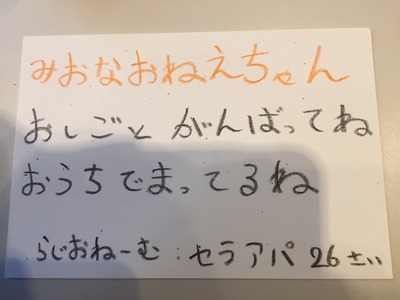 みおなおねえちゃん
おしごと がんばってね
おうちでまってるね
らじおねーむ：セラアパ 26さい